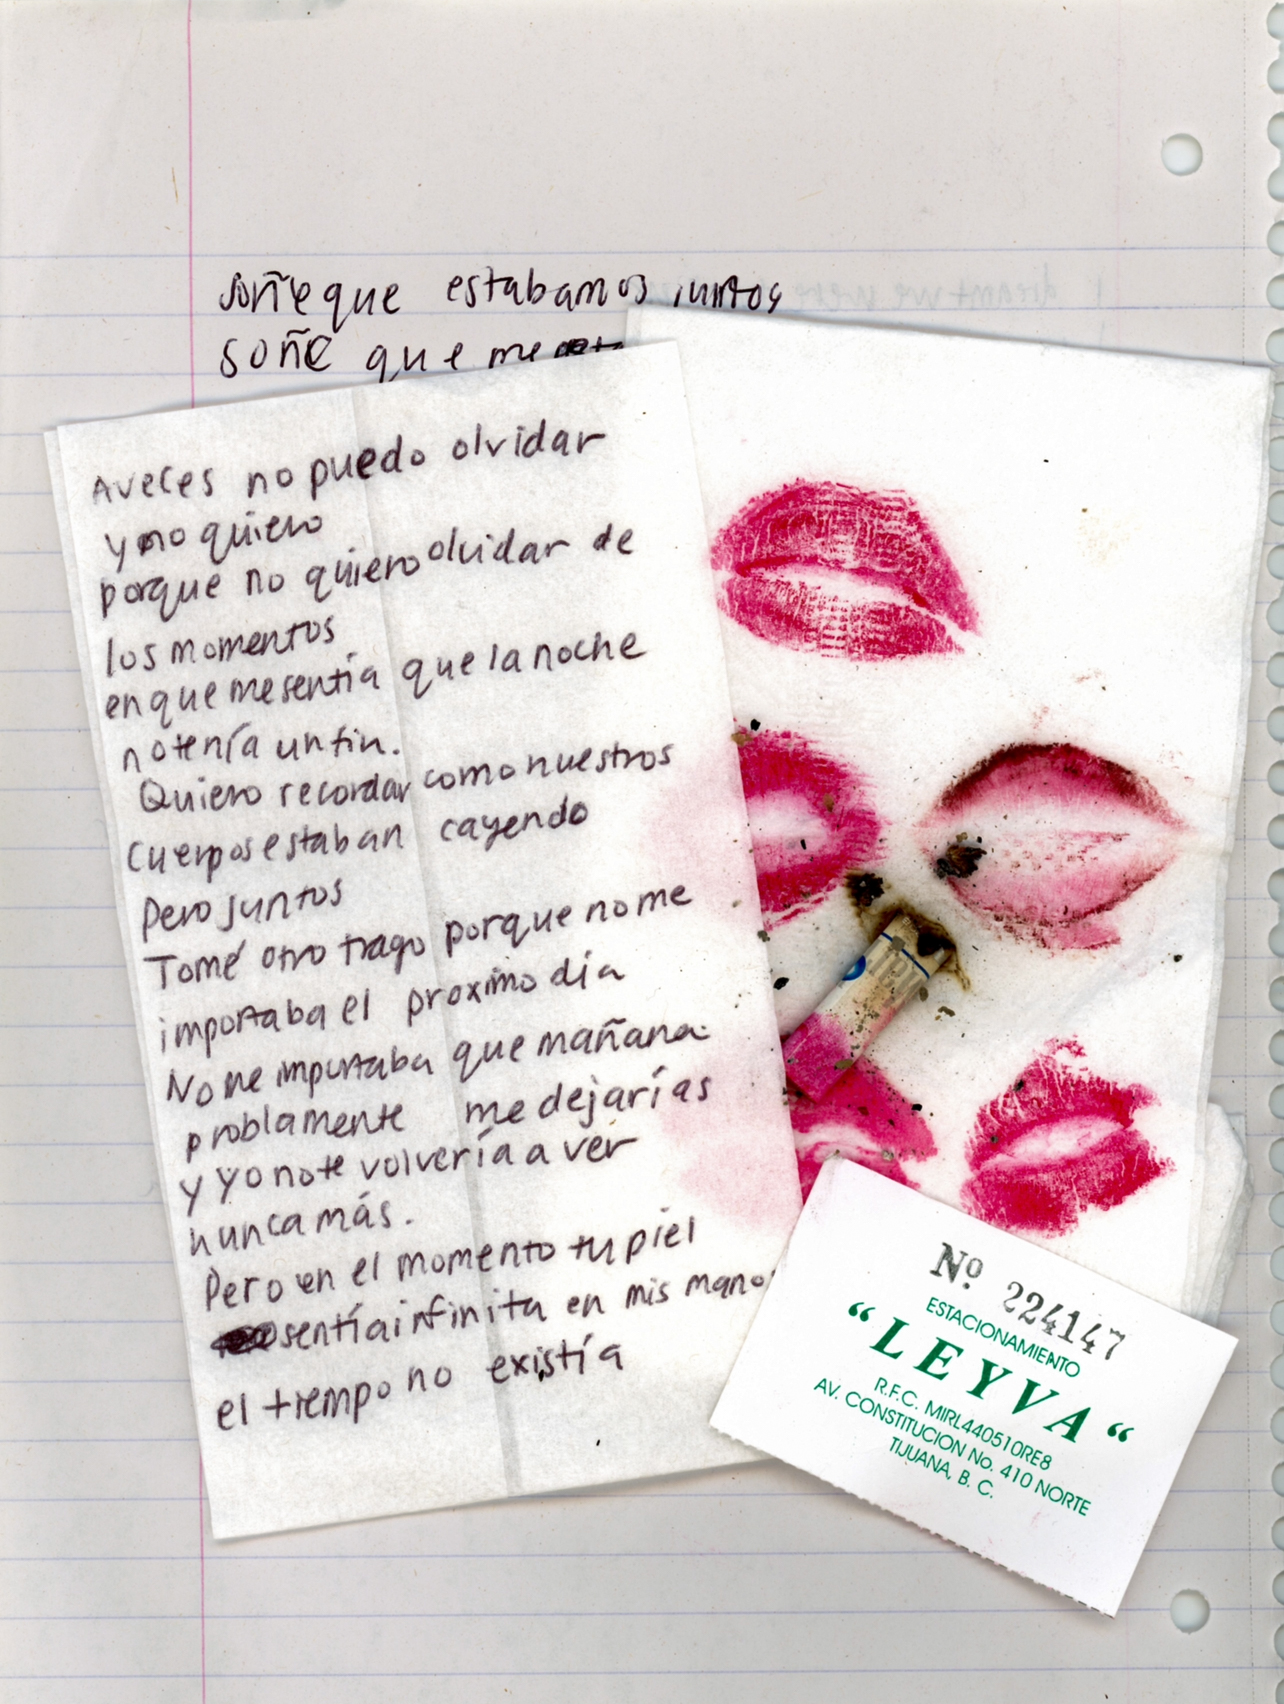 soñe que estabamos juntos
soñe que me
Aveces no puedo olvidar
y no quiero
porque no quiero olvidar de
los momentos
en que me sentía que la noche
no tenía un fin.
Quiero recordar como nuestros
cuerpos estaban cayendo
Pero juntos
Tomé otro trago porque no me
importaba el proximo día
No me importaba que mañana
problamente me dejarías
y yo no te volvería a ver
nunca más.
Pero en el momento tu piel
sentía infinita en mis mano
el tiempo no existía
Nº 224147
ESTACIONAMIENTO
“LEYVA“
R.F.C. MIRL440510RE8
AV. CONSTITUCION No. 410 NORTE
TIJUANA, B. C.